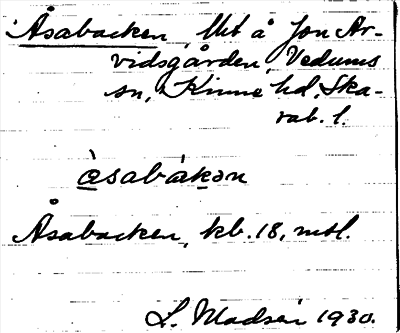 Åsabacken, Utt å Jon Ar-
vidsgården, Vedums
sn, Kinne hd, Ska-
rab. l.
Åsabacken, kb. 18, mtl.
L. Madsén 1930.